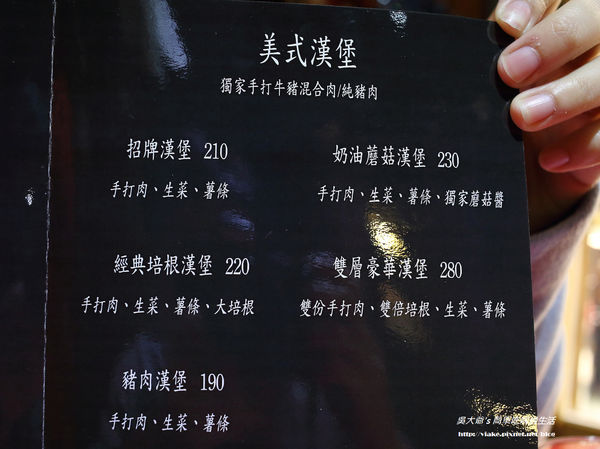 美式漢堡
獨家手打牛豬混合肉/純豬肉
招牌漢堡 210
手打肉、生菜、薯條
奶油蘑菇漢堡 230
手打肉、生菜、薯條、獨家蘑菇醬
經典培根漢堡 220
手打肉、生菜、薯條、大培根
雙層豪華漢堡 280
雙份手打肉、雙倍培根、生菜、薯條
豬肉漢堡 190
手打肉、生菜、薯條
吳大爺's 生活
http://viake.pixnet.net/blog